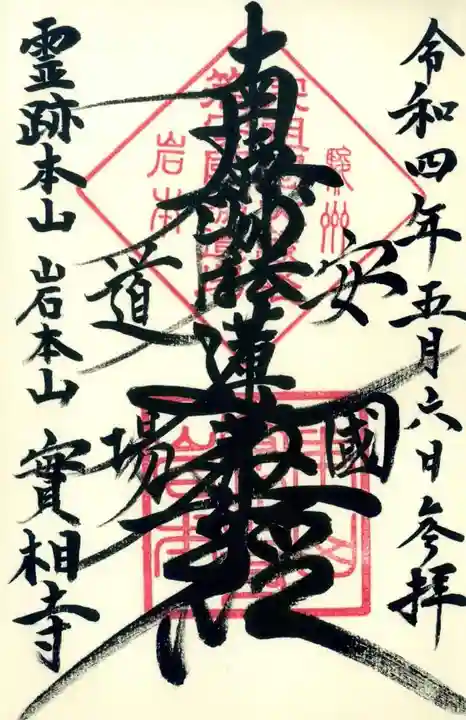 令和四年五月六日参拝
安國
南無妙法蓮華経
道場
霊跡本山 岩本山 實相寺
駿州
岩本